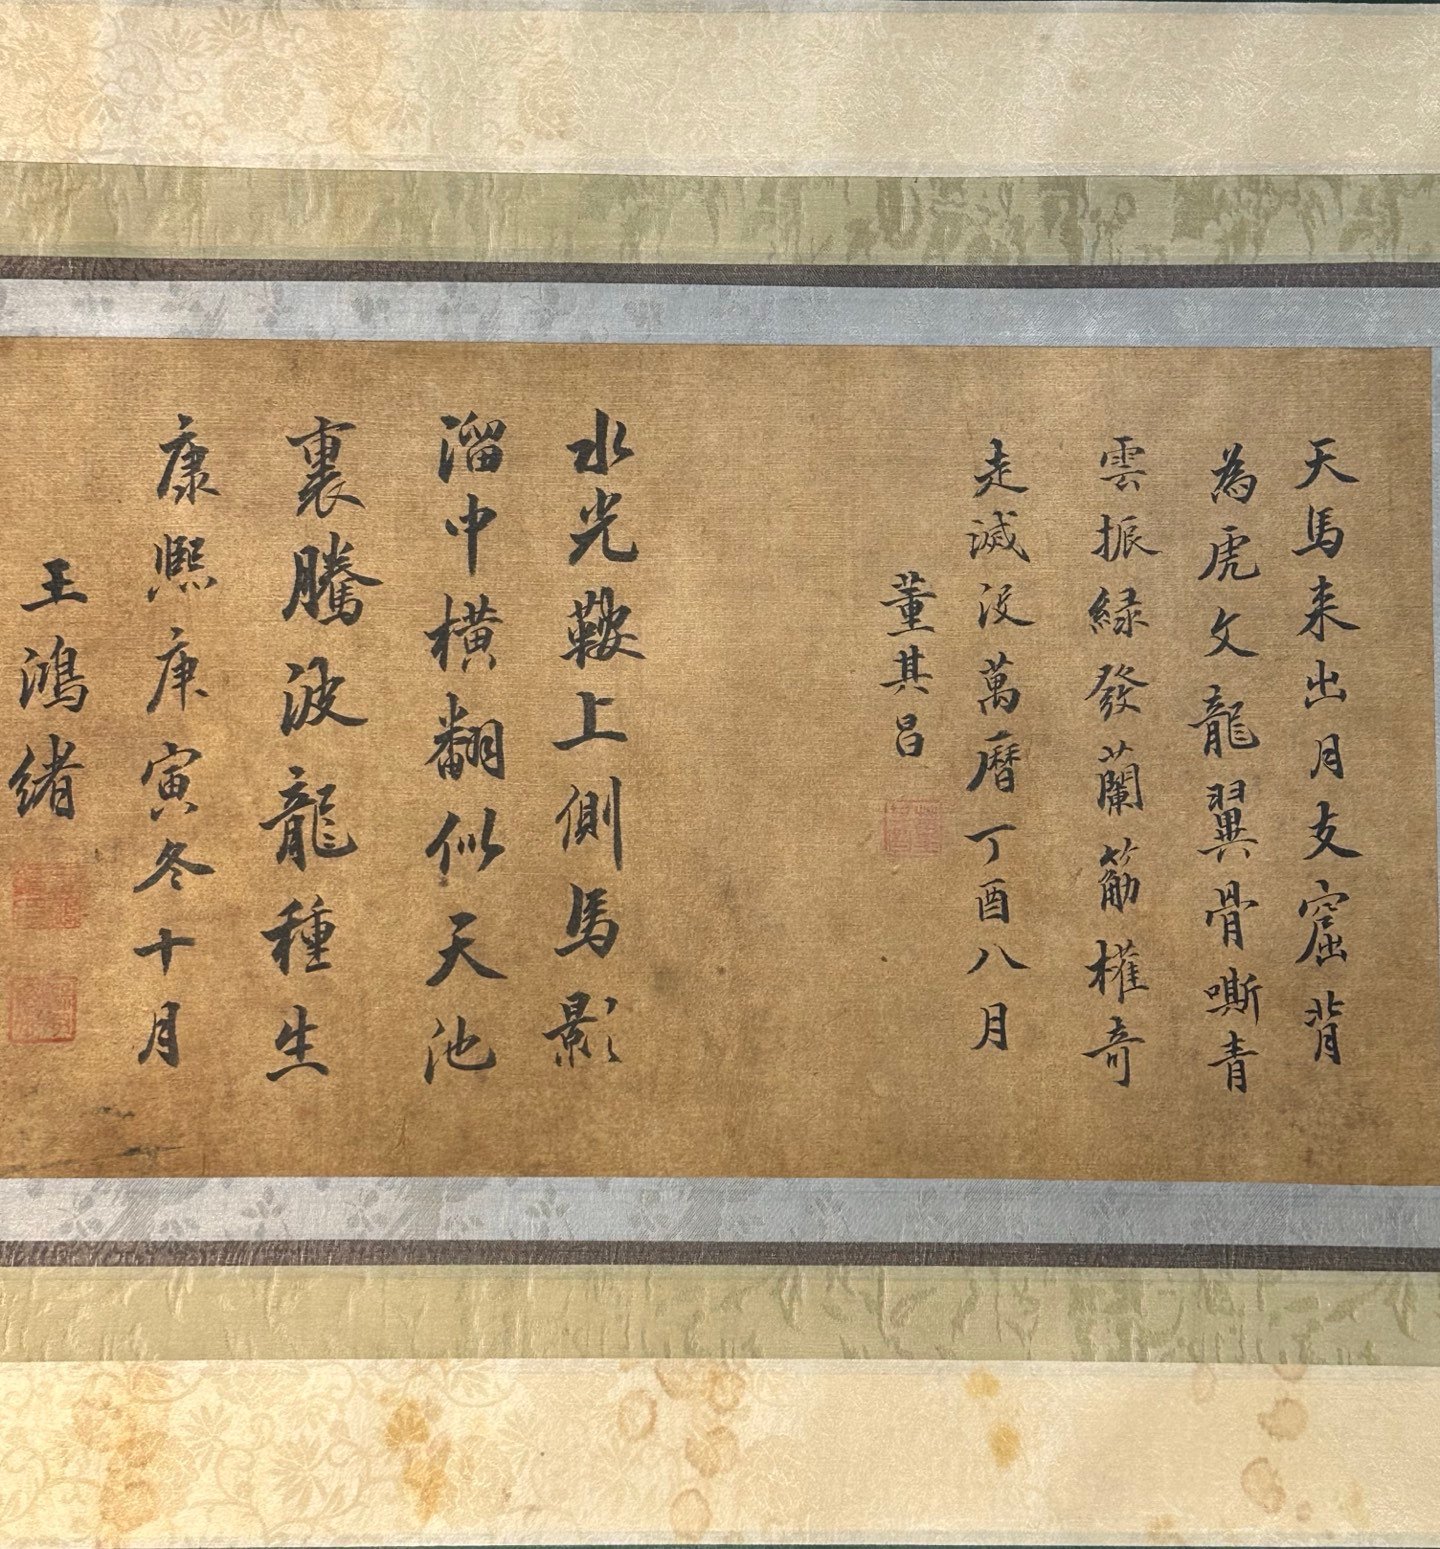 天馬来出月支窟背
為虎文龍翼骨嘶青
雲振緑發蘭筋權奇
走滅没萬曆丁酉八月
董其昌
水光鞍上側馬影
溜中橫翻似天池
裏騰波龍種生
康熙庚寅冬十月
王鴻緒